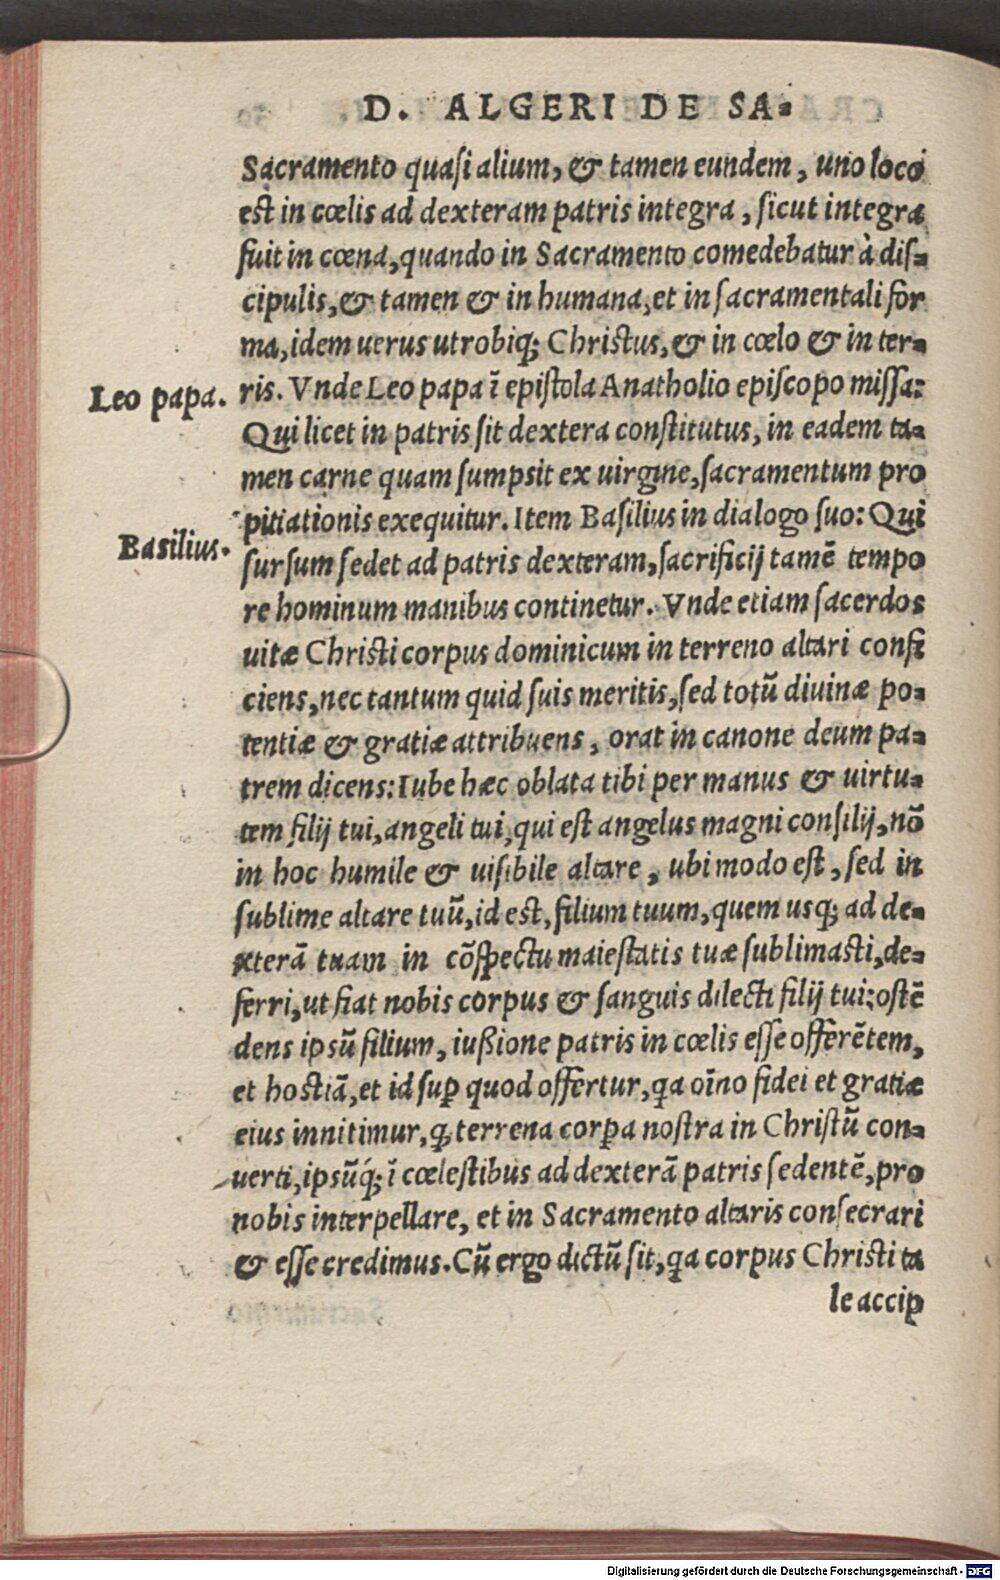 D. ALGERI DE SA-
Sacramento quasi alium, & tamen eundem, uno loco
est in cœlis ad dexteram patris integra, sicut integra
fuit in cœna, quando in Sacramento comedebatur à dis-
cipulis, & tamen & in humana, et in sacramentali for
ma, idem uerus utrobiq; Christus, & in cœlo & in ter-
Leo papa.
ris. Vnde Leo papa ĩ epistola Anatholio episcopo missa:
Qui licet in patris sit dextera constitutus, in eadem ta-
men carne quam sumpsit ex uirgine, sacramentum pro
pitiationis exequitur. Item Basilius in dialogo suo: Qui
Basilius.
sursum sedet ad patris dexteram, sacrificij tamẽ tempo
re hominum manibus continetur. Vnde etiam sacerdos
uitæ Christi corpus dominicum in terreno altari confi
ciens, nec tantum quid suis meritis, sed totũ diuinæ po-
tentiæ & gratiæ attribuens, orat in canone deum pa-
trem dicens: Iube hæc oblata tibi per manus & uirtu-
tem filij tui, angeli tui, qui est angelus magni consilij, nõ
in hoc humile & uisibile altare, ubi modo est, sed in
sublime altare tuũ, id est, filium tuum, quem usq; ad de-
xterã tuam in cõspectu maiestatis tuæ sublimasti, de-
ferri, ut fiat nobis corpus & sanguis dilecti filij tui: ostẽ
dens ipsũ filium, iußione patris in cœlis esse offerẽtem,
et hostiã, et id suꝑ quod offertur, qa oĩno fidei et gratiæ
eius innitimur, q; terrena corꝑa nostra in Christũ con-
uerti, ipsũq́; ĩ cœlestibus ad dexterã patris sedentẽ, pro
nobis interpellare, et in Sacramento altaris consecrari
& esse credimus. Cũ ergo dictũ sit, qa corpus Christi ta
le acciꝑ
Digitalisierung gefördert durch die Deutsche Forschungsgemeinschaft - DFG